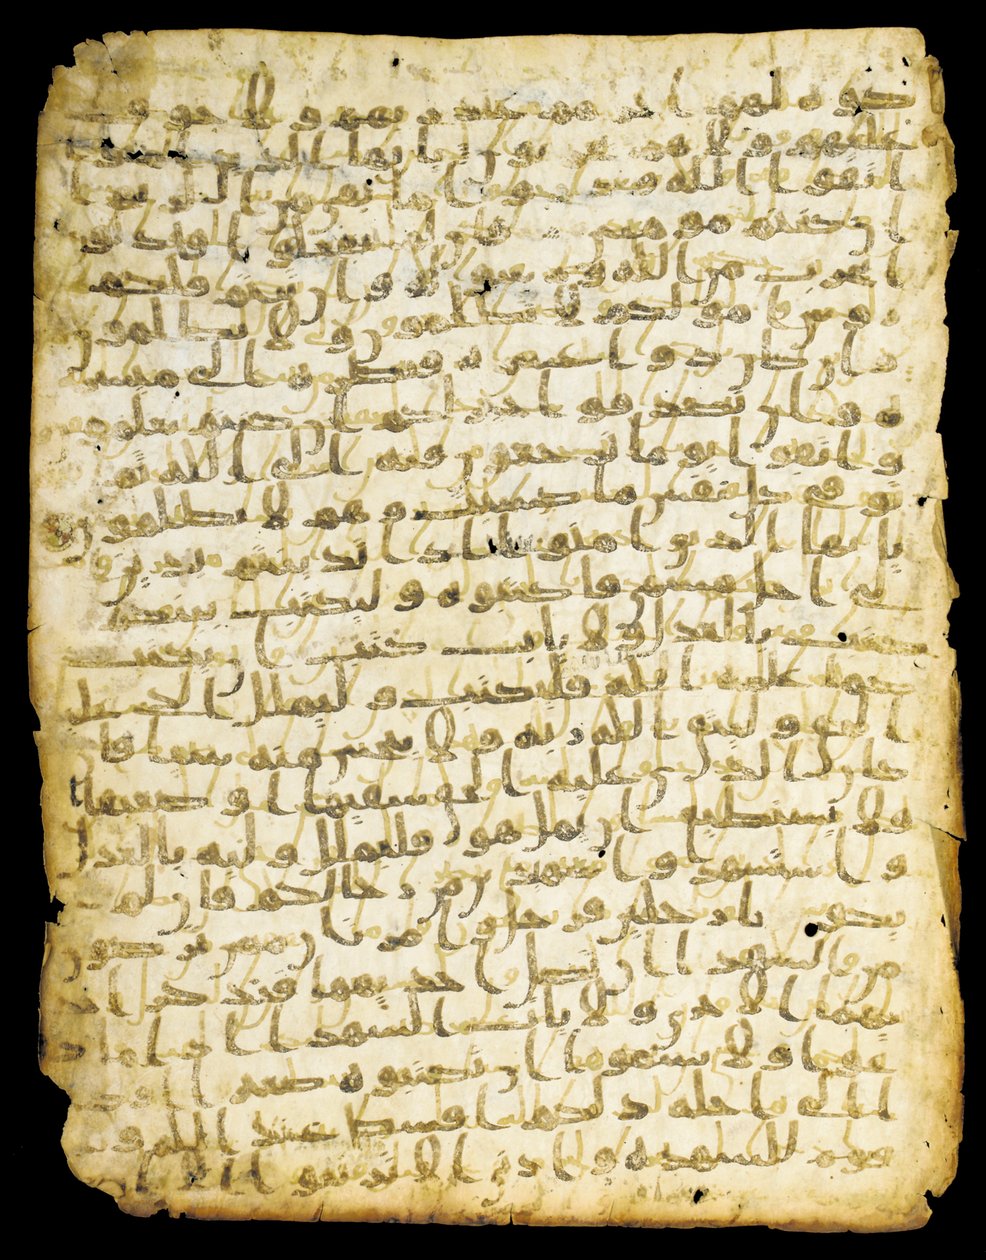 كوه لهم اجرهم عند ربهم و لا خوف
عليهم و لا هم يحزنون يايها الذين امنوا
اتقوا الله وذروا ما بقى من الربوا
ان كنتم مومنين فان لم تفعلوا فاذنوا
بحرب من الله ورسوله و ان تبتم فلكم
روس امولكم لا تظلمون و لا تظلمون
و ان كان ذو عسره فنظره الى ميسر
ه و ان تصدقوا خير لكم ان كنتم تعلمون
و اتقوا يوما ترجعون فيه الى الله ثم
توفى كل نفس ما كسبت و هم لا يظلمون
يايها الذين امنوا اذا تدينتم بدين
الى اجل مسمى فاكتبوه و ليكتب بينكم
كتب بالعدل و لا ياب كتب ان يكتب
كما علمه الله فليكتب و ليملل الذى
عليه الحق و ليتق الله ربه و لا يبخس منه شيا فا
ن كان الذى عليه الحق سفيها او ضعيفا
او لا يستطيع ان يمل هو فليملل وليه بالعدل
و استشهدوا شهيدين من رجالكم فان لم
يكونا رجلين فرجل و امراتن ممن ترضون
من الشهدا ان تضل احديهما فتذكر احد
يهما الاخرى و لا ياب الشهدا اذا ما د
عوا و لا تسموا ان تكتبوه صغيرا او كبيرا
الى اجله ذلكم اقسط عند الله و ا
قوم للشهده و ادنى الا ترتبوا الا ان